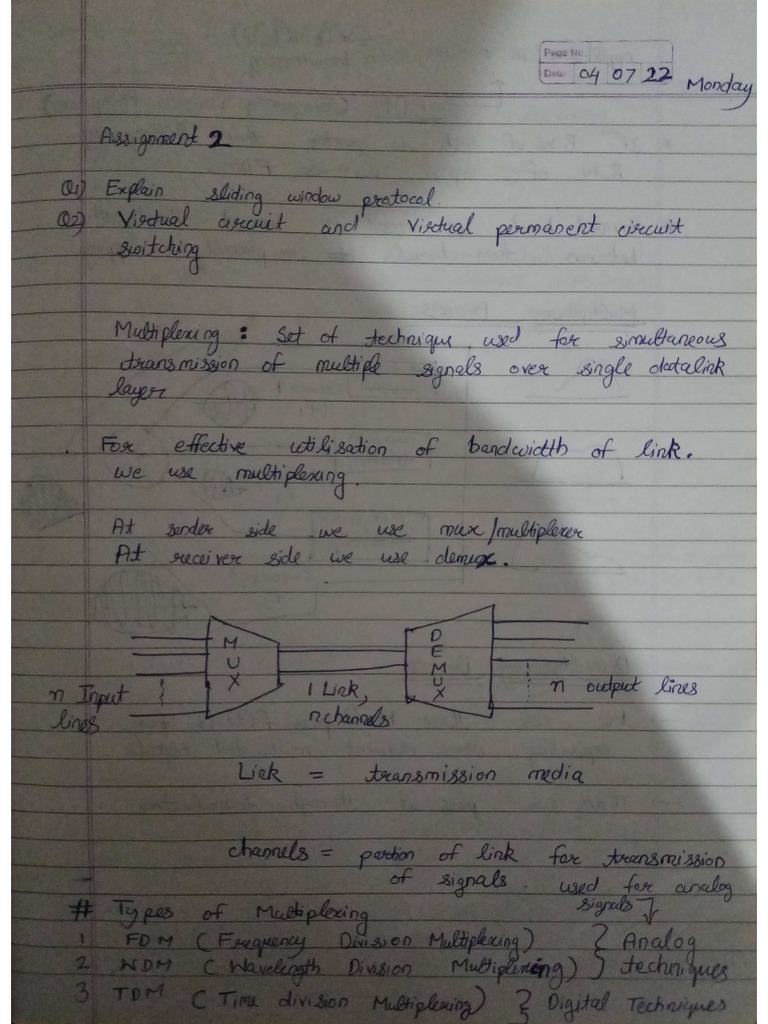 Page No.
Date 04 07 22
Monday
Assignment 2
Q1) Explain sliding window protocol.
Q2) Virtual circuit and virtual permanent circuit
switching
Multiplexing : Set of technique used for simultaneous
transmission of multiple signals over single datalink
layer
. For effective utilisation of bandwidth of link.
we use multiplexing.
At sender side we use mux/multiplexer
At receiver side we use demux.
MUX
DEMUX
n Input
lines
1 Link,
n channels
n output lines
Link = transmission media
channels = portion of link for transmission
of signals. used for analog
signals
# Types of Multiplexing
1 FDM ( Frequency Division Multiplexing) } Analog
2 WDM ( Wavelength Division Multiplexing) } techniques
3 TDM ( Time division Multiplexing) } Digital Techniques